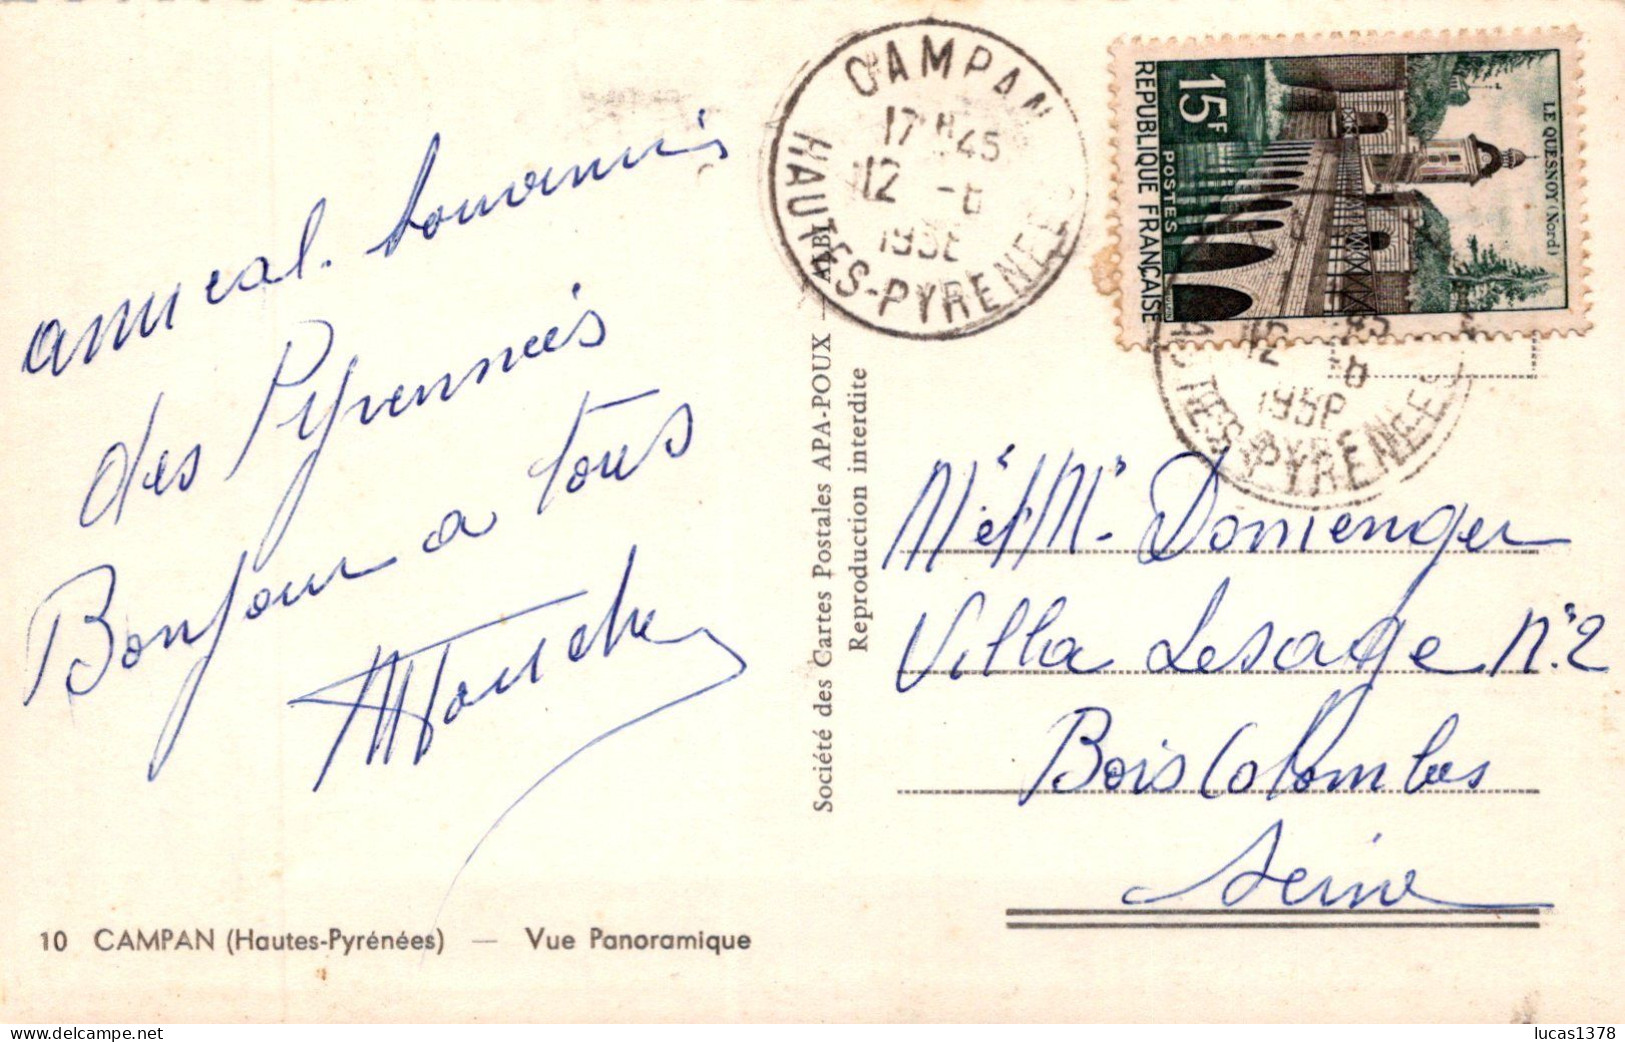 amical souvenir
des Pyrennées
Bonjour a tous
10 CAMPAN (Hautes-Pyrénées) — Vue Panoramique
Société des Cartes Postales APA-POUX — ALBI
Reproduction interdite
CAMPAN
17H45
12 -8
HAUTES-PYRENEES
15F
POSTES
REPUBLIQUE FRANÇAISE
LE QUESNOY (Nord)
12 -8
HAUTES-PYRENEES
Mr et Me Domenger
Villa Lesage N°2
Bois Colombes
Seine
www.delcampe.net
lucas1378